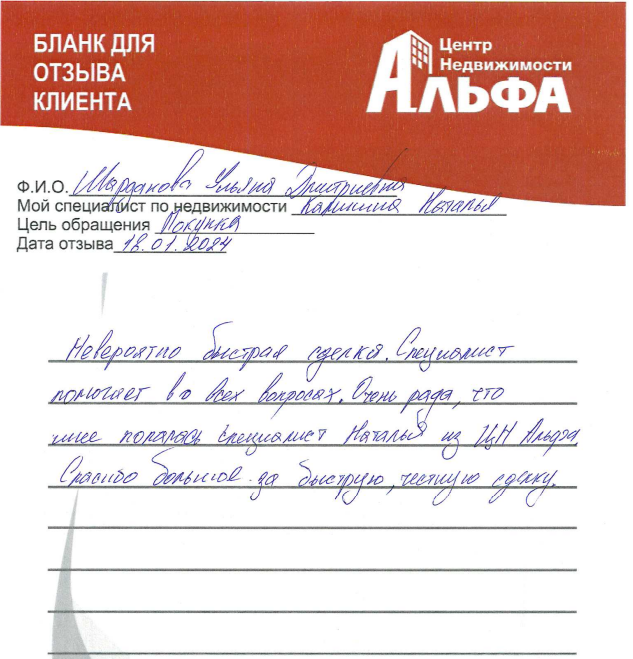 БЛАНК ДЛЯ
ОТЗЫВА
КЛИЕНТА
Центр
Недвижимости
АЛЬФА
Ф.И.О. Шарданова Ульяна Дмитриевна
Мой специалист по недвижимости Калинина Наталья
Цель обращения Покупка
Дата отзыва 18.01.2024
Невероятно быстрая сделка. Специалист
помогает во всех вопросах. Очень рада, что
мне попалась специалист Наталья из ЦН Альфа.
Спасибо большое за быструю, честную сделку.